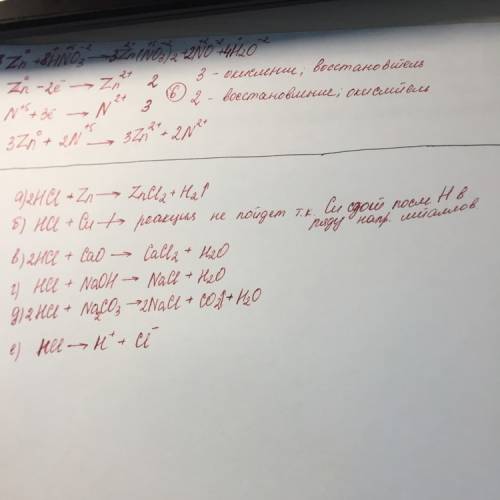 3Zn⁰ + 8HN⁺⁵O₃⁻² → 3Zn(NO₃)₂ + 2NO⁻² + 4H₂O⁻²
Zn⁰ - 2ē → Zn²⁺ 2 3 - окисление; восстановитель
N⁺⁵ + 3ē → N²⁺ 3 ⑥ 2 - восстановление; окислитель
3Zn⁰ + 2N⁺⁵ → 3Zn²⁺ + 2N²⁺
а) 2HCl + Zn → ZnCl₂ + H₂↑
б) HCl + Cu ⇸ реакция не пойдет т.к. Cu стоит после H в
ряду напр. металлов
в) 2HCl + CaO → CaCl₂ + H₂O
г) HCl + NaOH → NaCl + H₂O
д) 2HCl + Na₂CO₃ → 2NaCl + CO₂↑ + H₂O
е) HCl → H⁺ + Cl⁻